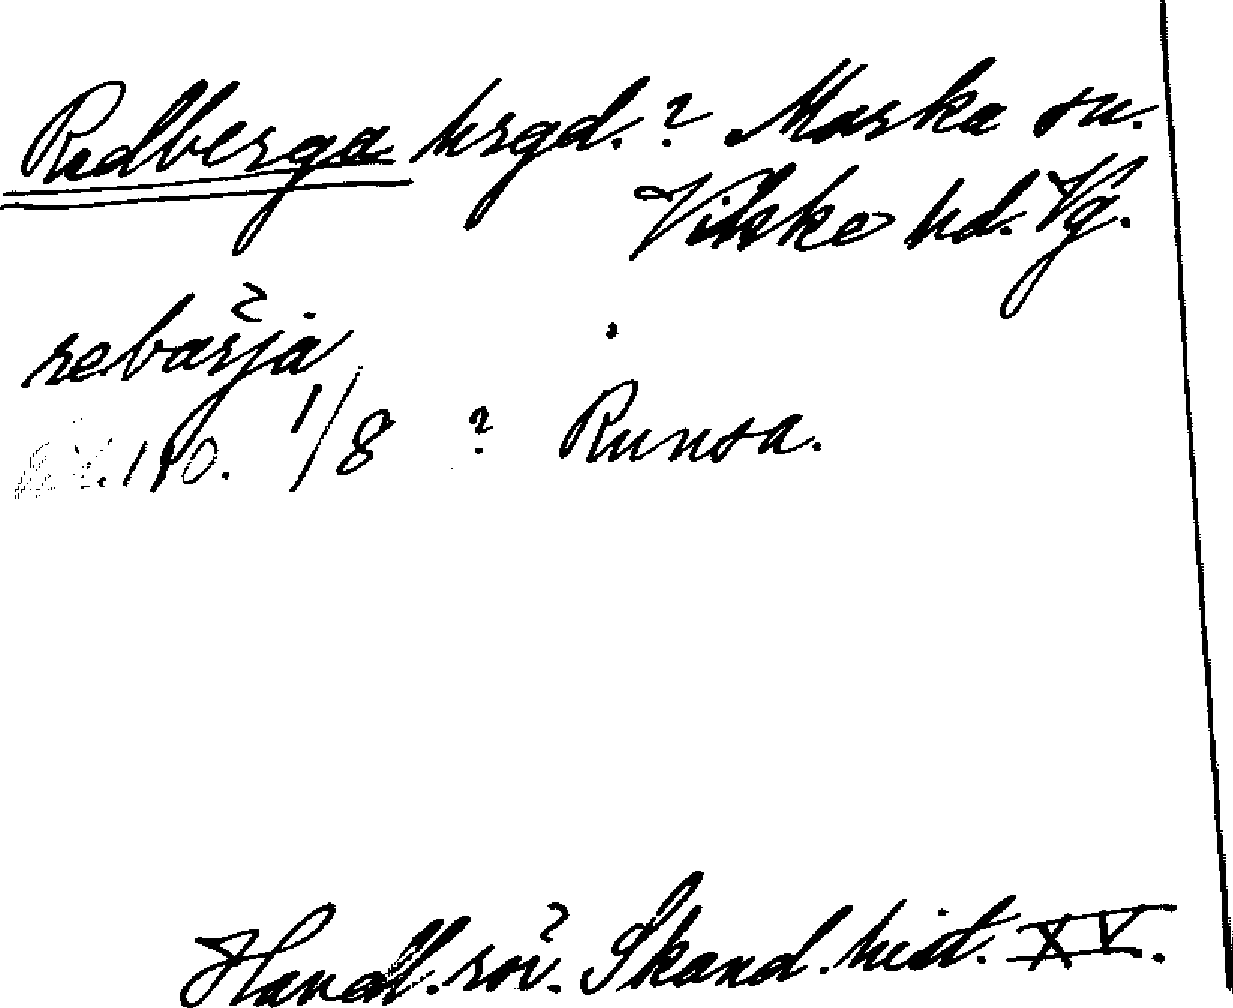 Rudberga hrgd.? Marka sn.
Vilske hd. Vg.
rebärja
190. 1/8 ? Runsa.
Handl. rör. Skand. hist. XV.